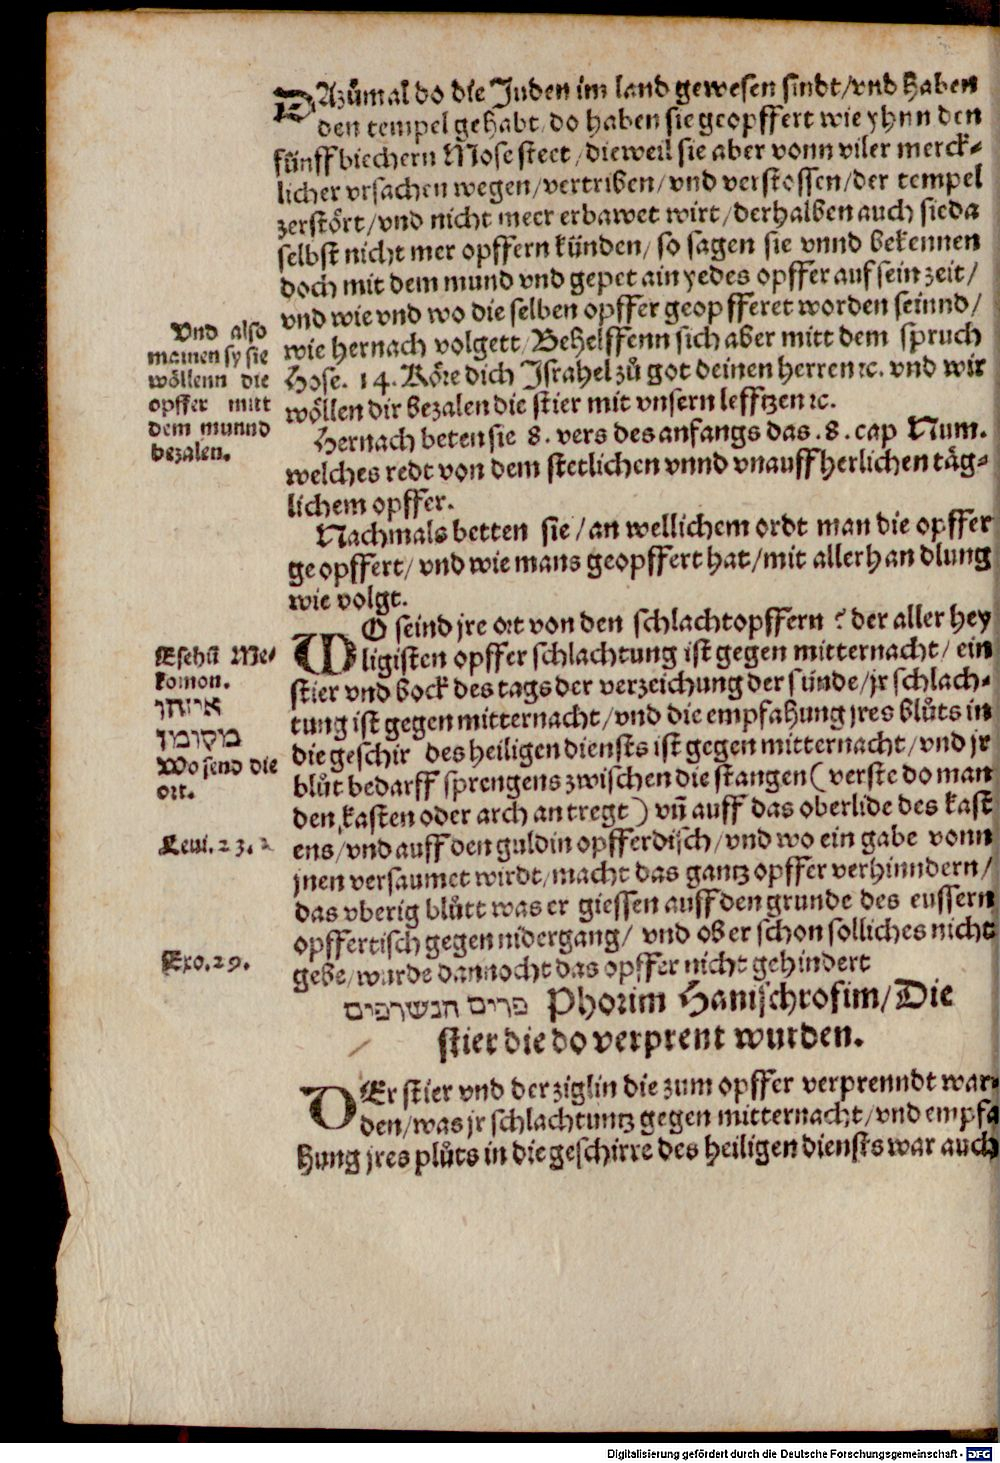 DAzůmal do die Juden im land gewesen sindt/vnd haben
den tempel gehabt/do haben sie geopffert wie yhnn den
fünff biechern Mose steet/dieweil sie aber vonn viler merck-
licher vrsachen wegen/vertriben/vnd verstossen/der tempel
zerstört/vnd nicht meer erbawet wirt/derhalben auch sie da
selbst nicht mer opffern künden/so sagen sie vnnd bekennen
doch mit dem mund vnd gepet ain yedes opffer auf sein zeit/
vnd wie vnd wo die selben opffer geopfferet worden seinnd/
wie hernach volgett/Behelffenn sich aber mitt dem spruch
Hose. 14. Köre dich Israhel zů got deinen herren ꝛc. vnd wir
wöllen dir bezalen die stier mit vnsern lefftzen ꝛc.
Vnd also
mainen sy sie
wöllenn die
opffer mitt
dem munnd
bezalen.
Hernach beten sie 8. vers des anfangs das .8. cap Num.
welches redt von dem stetlichen vnnd vnauffherlichen täg-
lichem opffer.
Nachmals betten sie/an wellichem ordt man die opffer
geopffert/vnd wie mans geopffert hat/mit aller handlung
wie volgt.
WO seind jre ort von den schlachtopffern? der aller hey
ligisten opffer schlachtung ist gegen mitternacht/ein
stier vnd bock des tags der verzeichung der sünde/jr schlach-
tung ist gegen mitternacht/vnd die empfahung jres blůts in
die geschir des heiligen diensts ist gegen mitternacht/vnd jr
blůt bedarff sprengens zwischen die stangen (verste do man
den kasten oder arch an tregt) vñ auff das oberlide des kast
ens/vnd auff den guldin opfferdisch/vnd wo ein gabe vonn
jnen versaumet wirdt/macht das gantz opffer verhinndern/
das vberig blůtt was er giessen auff den grunde des eussern
opffertisch gegen nidergang/vnd ob er schon solliches nicht
gebe/wurde dannocht das opffer nicht gehindert
Esehu Me-
komon.
איזהו
מקומן
Wo send die
ort.
Leui. 23.
Exo. 29.
פרים הנשרפים Phorim Hanischrofim/Die
stier die do verprent wurden.
DEr stier vnd der ziglin die zum opffer verprenndt war-
den/was jr schlachtuntz gegen mitternacht/vnd empfa
hung jres plůts in die geschirre des heiligen diensts war auch
Digitalisierung gefördert durch die Deutsche Forschungsgemeinschaft - DFG